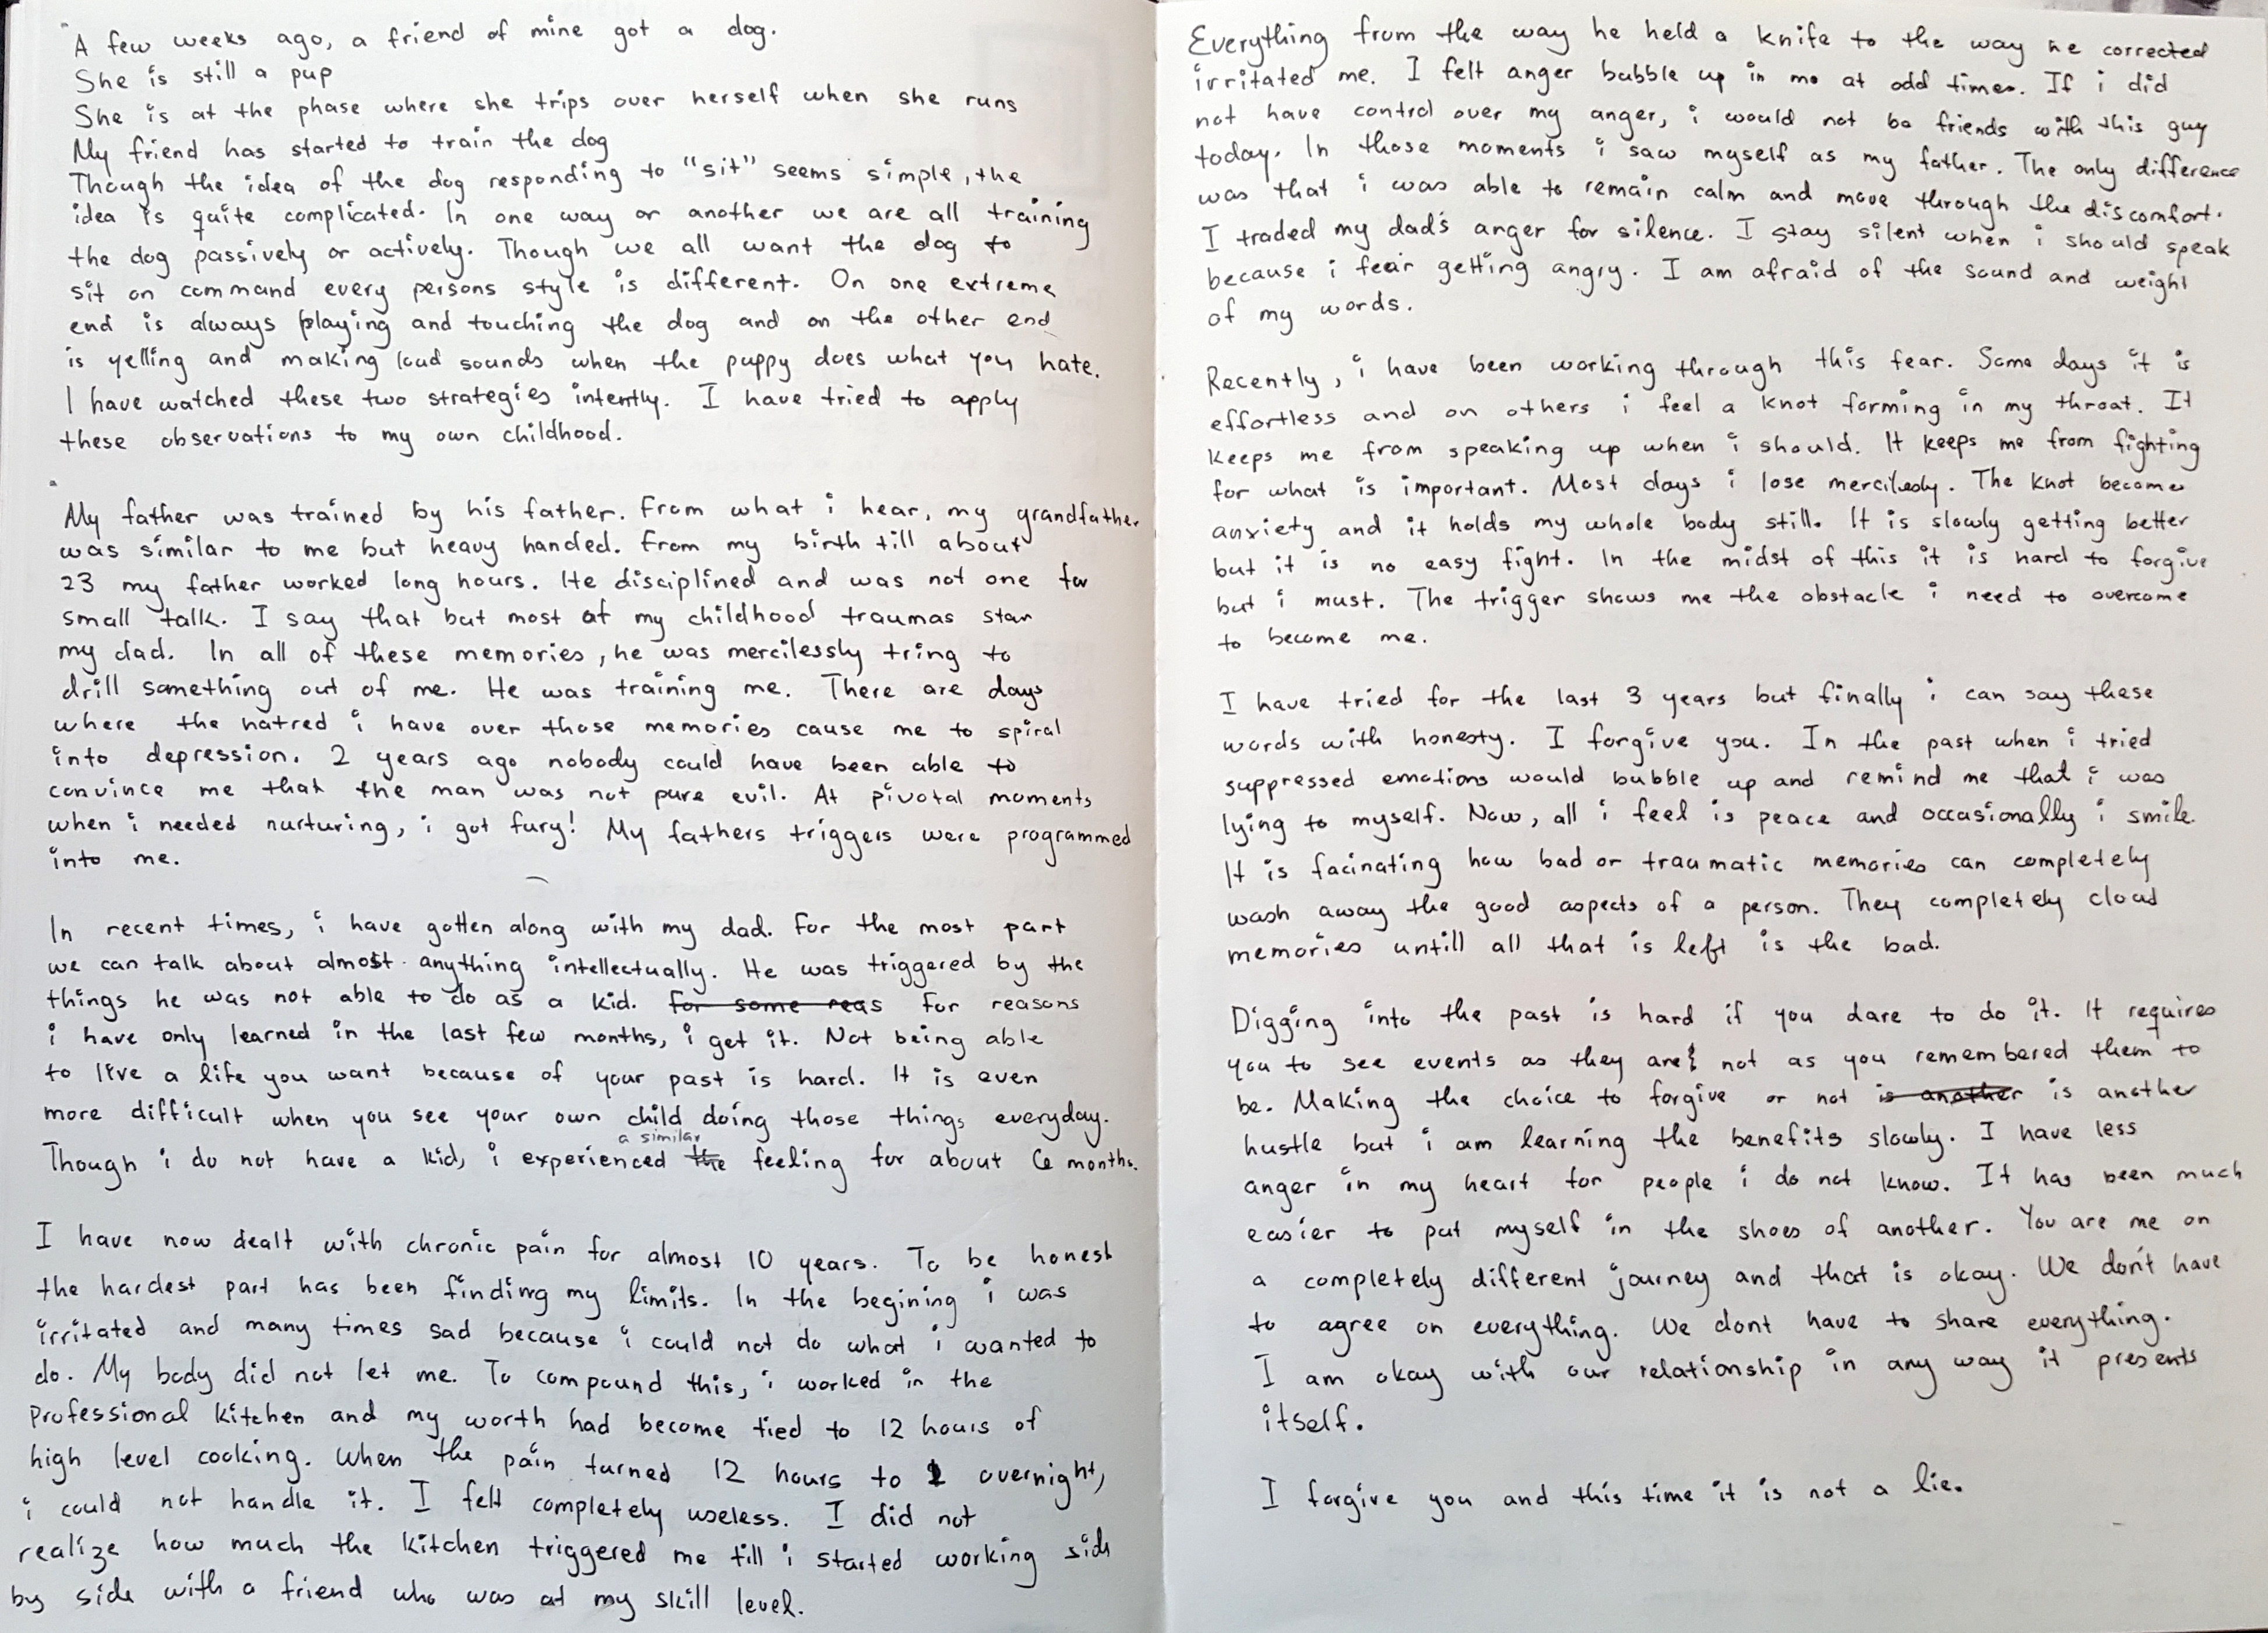 A few weeks ago, a friend of mine got a dog.
She is still a pup
She is at the phase where she trips over herself when she runs
My friend has started to train the dog
Though the idea of the dog responding to "sit" seems simple, the
idea is quite complicated. In one way or another we are all training
the dog passively or actively. Though we all want the dog to
sit on command every persons style is different. On one extreme
end is always playing and touching the dog and on the other end
is yelling and making loud sounds when the puppy does what you hate.
I have watched these two strategies intently. I have tried to apply
these observations to my own childhood.
My father was trained by his father. From what i hear, my grandfather
was similar to me but heavy handed. From my birth till about
23 my father worked long hours. He disciplined and was not one for
small talk. I say that but most of my childhood traumas star
my dad. In all of these memories, he was mercilessly tring to
drill something out of me. He was training me. There are days
where the hatred i have over those memories cause me to spiral
into depression. 2 years ago nobody could have been able to
convince me that the man was not pure evil. At pivotal moments
when i needed nurturing, i got fury! My fathers triggers were programmed
into me.
In recent times, i have gotten along with my dad. For the most part
we can talk about almost anything intellectually. He was triggered by the
things he was not able to do as a kid. for some reas For reasons
i have only learned in the last few months, i get it. Not being able
to live a life you want because of your past is hard. It is even
more difficult when you see your own child doing those things everyday.
Though i do not have a kid, i experienced the a similar feeling for about 6 months.
I have now dealt with chronic pain for almost 10 years. To be honest
the hardest part has been finding my limits. In the begining i was
irritated and many times sad because i could not do what i wanted to
do. My body did not let me. To compound this, i worked in the
professional kitchen and my worth had become tied to 12 hours of
high level cooking. When the pain turned 12 hours to 1 overnight,
i could not handle it. I felt completely useless. I did not
realize how much the kitchen triggered me till i started working side
by side with a friend who was at my skill level.
Everything from the way he held a knife to the way he corrected
irritated me. I felt anger bubble up in me at odd times. If i did
not have control over my anger, i would not be friends with this guy
today. In those moments i saw myself as my father. The only difference
was that i was able to remain calm and move through the discomfort.
I traded my dad's anger for silence. I stay silent when i should speak
because i fear getting angry. I am afraid of the sound and weight
of my words.
Recently, i have been working through this fear. Some days it is
effortless and on others i feel a knot forming in my throat. It
keeps me from speaking up when i should. It keeps me from fighting
for what is important. Most days i lose mercilesly. The knot become
anxiety and it holds my whole body still. It is slowly getting better
but it is no easy fight. In the midst of this it is hard to forgive
but i must. The trigger shows me the obstacle i need to overcome
to become me.
I have tried for the last 3 years but finally i can say these
words with honesty. I forgive you. In the past when i tried
suppressed emotions would bubble up and remind me that i was
lying to myself. Now, all i feel is peace and occasionally i smile.
It is facinating how bad or traumatic memories can completely
wash away the good aspects of a person. They completely cloud
memories untill all that is left is the bad.
Digging into the past is hard if you dare to do it. It requires
you to see events as they are; not as you remembered them to
be. Making the choice to forgive or not is another is another
hustle but i am learning the benefits slowly. I have less
anger in my heart for people i do not know. It has been much
easier to put myself in the shoes of another. You are me on
a completely different journey and that is okay. We don't have
to agree on everything. We dont have to share everything.
I am okay with our relationship in any way it presents
itself.
I forgive you and this time it is not a lie.